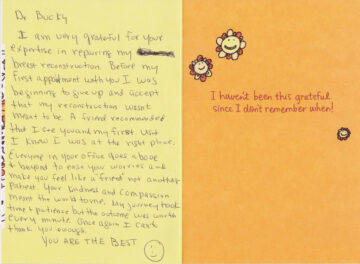 Dr Bucky
I am very grateful for your
expertise in repairing my
breast reconstruction. Before my
first appointment with you I was
beginning to give up and accept
that my reconstruction wasnt
meant to be. A friend recommended
that I see you and my first visit
I know I was at the right place.
Everyone in your office goes above
+ beyond to ease your worries and
make you feel like a friend not another
patient. Your kindness and compassion
meant the world to me. My journey took
time + patience but the outcome was worth
every minute. Once again I cant
thank you enough.
YOU ARE THE BEST
I haven't been this grateful
since I don't remember when!